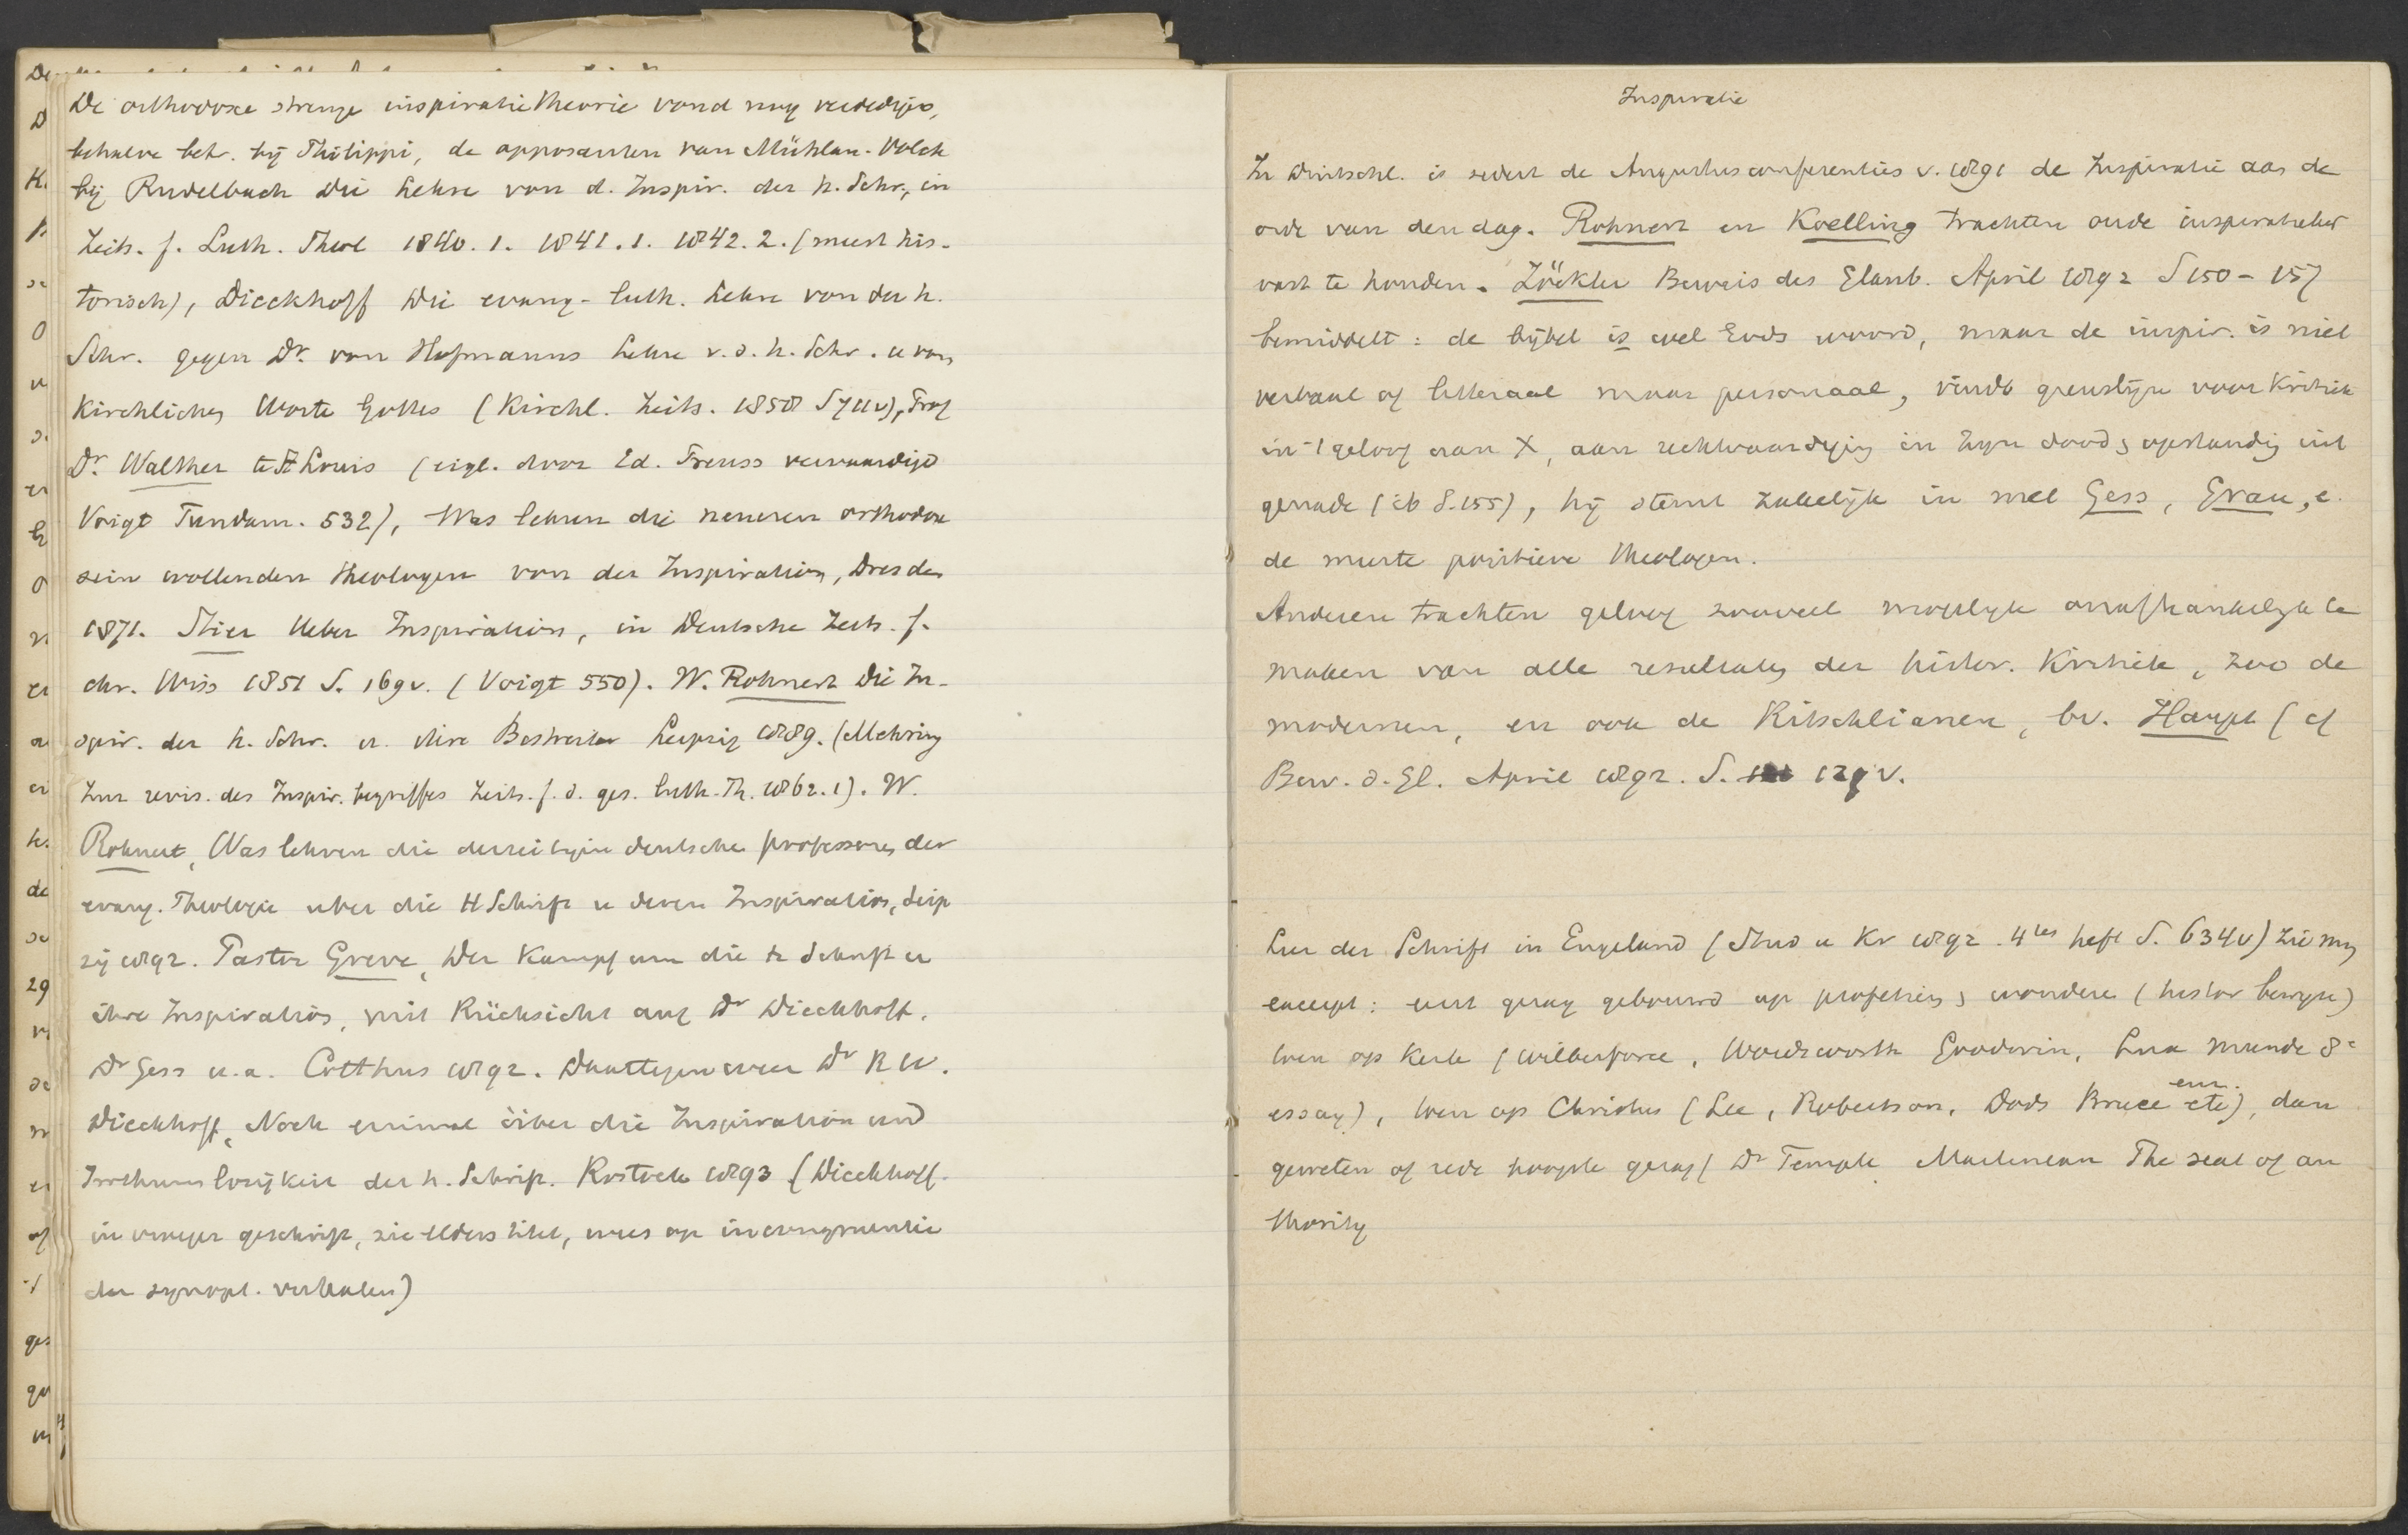 De orthodoxe strenge inspiratie theorie vond nog verdedigers,
behalve behr. bij Philippi, de opposanten van Mühlau-Volck
bij Rudelbach Die Lehre von d. Inspir. der h. Schr., in
Zeits. f. Luth. Theol 1840.1. 1841.1. 1842.2. (meest his-
torisch), Dieckhoff Die evang-luth. Lehre von der h.
Schr. gegen Dr. von Hofmanns Lehre v.d.h. Schr. u vom
Kirchlichen Worte Gottes (Kirchl. Zeits. 1858 S 711v), Prof
Dr. Walther te St Louis (eigl. door Ed. Preuss vervaardigd
Voigt Fundam. 532), Was lehren die neueren orthodox
sein wollenden Theologen von der Inspiration, Dresden
1871. Stier Ueber Inspiration, in Deutsche Zeits. f.
chr. Wiss 1851 S. 169v. (Voigt 550). W. Rohnert Die In-
spir. der h. Schr. u. ihre Bestreiter Leipzig 1889. (Mehring
Zur revis. des Inspir. begriffes Zeits. f. d. ges. luth. Th. 1862.1). W.
Rohnert, Was lehren die derzeitigen deutschen professoren der
evang. Theologie uber die H Schrift u deren Inspiration, Leip
zig 1892. Pastor Greve, Der Kampf um die h Schrift u
ihre Inspiration, mit Rücksicht auf Dr Dieckhoff,
Dr Gess u.a. Cotthus 1892. Daartegen weer Dr R W.
Dieckhoff, Noch einmal über die Inspiration und
Irrthumslosigkeit der h. Schrift. Rostock 1893 (Dieckhoff
in vroeger geschrift, zie elders titel, wees op incongruentie
der synopt. verhalen)
Inspiratie
In Duitschl. is sedert de Augustusconferenties v. 1891 de Inspiratie aan de
orde van den dag. Rohnert en Koelling trachten oude inspiratieleer
vast te houden. Zöckler Beweis des Glaub. April 1892 S 150-157
bemiddelt: de bijbel is wel Gods woord, maar de inspir. is niet
verbaal of litteraal maar personaal, vindt grenslijn voor Kritiek
in 't geloof aan X, aan rechtvaardiging in zijn dood & opstanding uit
genade (ib S.155), hij stemt zakelijk in met Gess, Grau, e.
de meeste positieve theologen.
Anderen trachten geloof zooveel mogelijk onafhankelijk te
maken van alle resultaten der histor. Kritiek, zoo de
modernen, en ook de Ritschlianen, bv. Haupt (cf
Bew. d. Gl. April 1892. S. 129v.
Leer der Schrift in Engeland (Stud u Kr 1892. 4tes heft S. 634v) zie mijn
excerpt: eerst gezag gebouwd op profetien & wonderen (histor bewijzen)
toen op Kerk (Wilberforce, Wordsworth Goodwin, Lux Mundi 8e
essay), toen op Christus (Lee, Robertson, Dods Bruce enz.), dan
geweten of rede hoogste gezag (Dr Temple Martineau The seat of au
thority